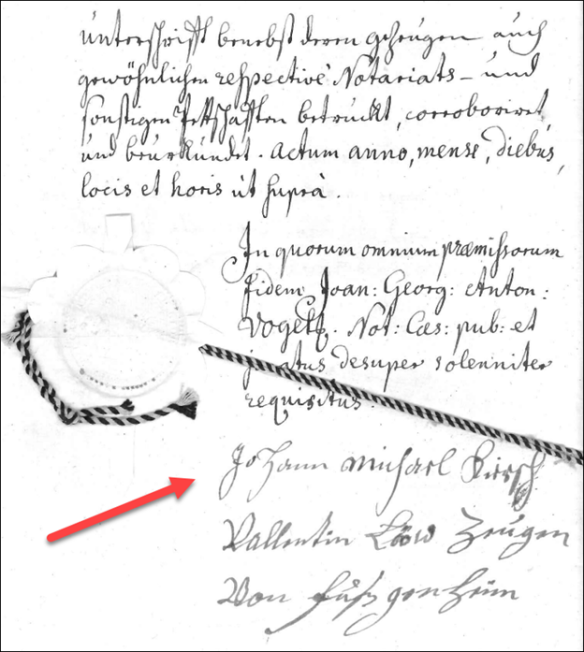 unterschrifft benebst deren gezeugen auch
gewöhnlichen respectivè Notariats- und
sonstigen Pettschafften betruckt, corroboriret,
und beurkundet. actum anno, mense, diebus,
locis et horis ut suprà.
In quorum omnium præmissorum
fidem Joan: Georg: Anton:
Vogelz. Not: Cæs: pub: et
juratus desuper solenniter
requisitus.
Johann Michael Kirsch
Vallentin Löw Zeugen
Von fußgenheim